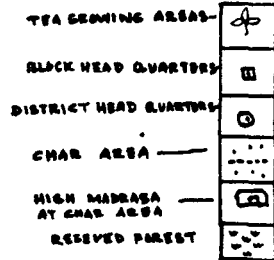 TEA GROWING AREAS-
BLOCK HEAD QUARTERS
DISTRICT HEAD QUARTERS
CHAR AREA
HIGH MADRASA
AT CHAR AREA
RESEVED FOREST